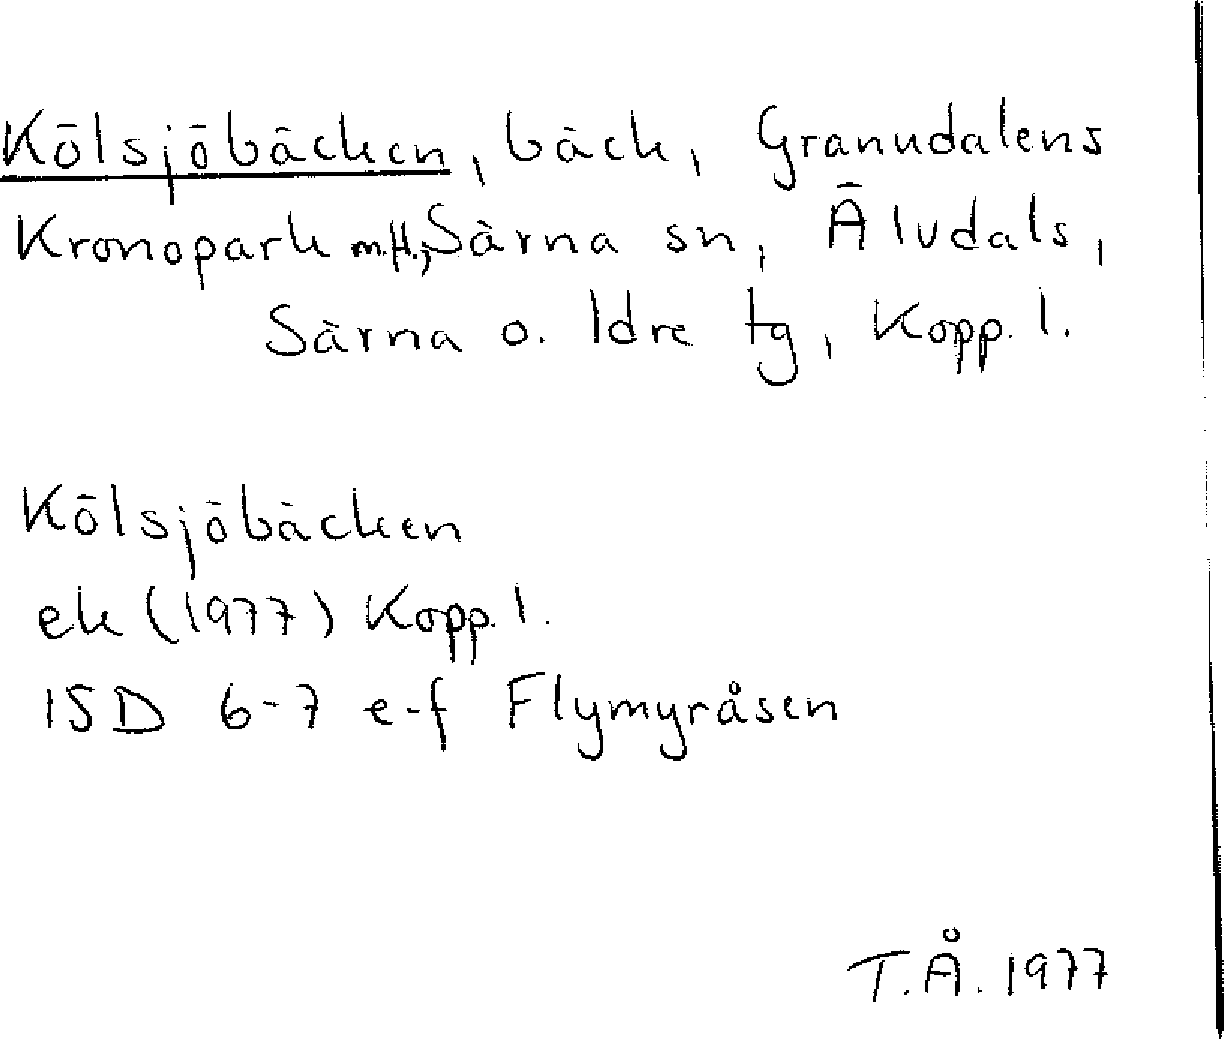 Kölsjöbäcken, bäck, Granudalens
Kronopark m.fl., Särna sn, Älvdals,
Särna o. Idre tg, Kopp. l.
Kölsjöbäcken
ek (1977) Kopp. l.
15D 6-7 e-f Flymyråsen
T.Å. 1977